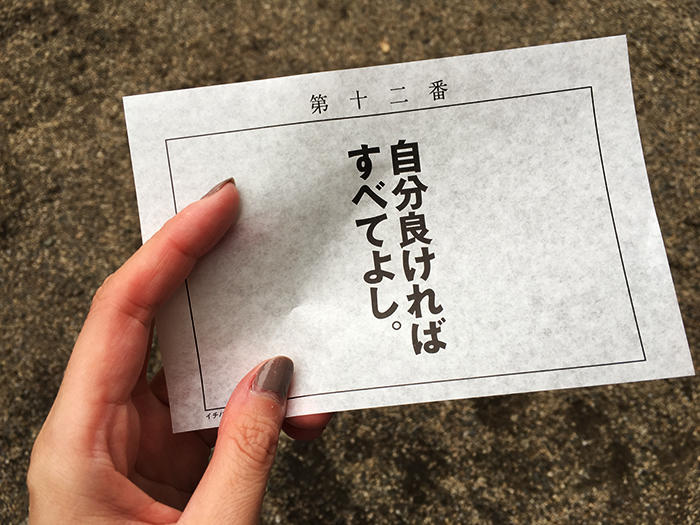 第十二番
自分良ければ
すべてよし。